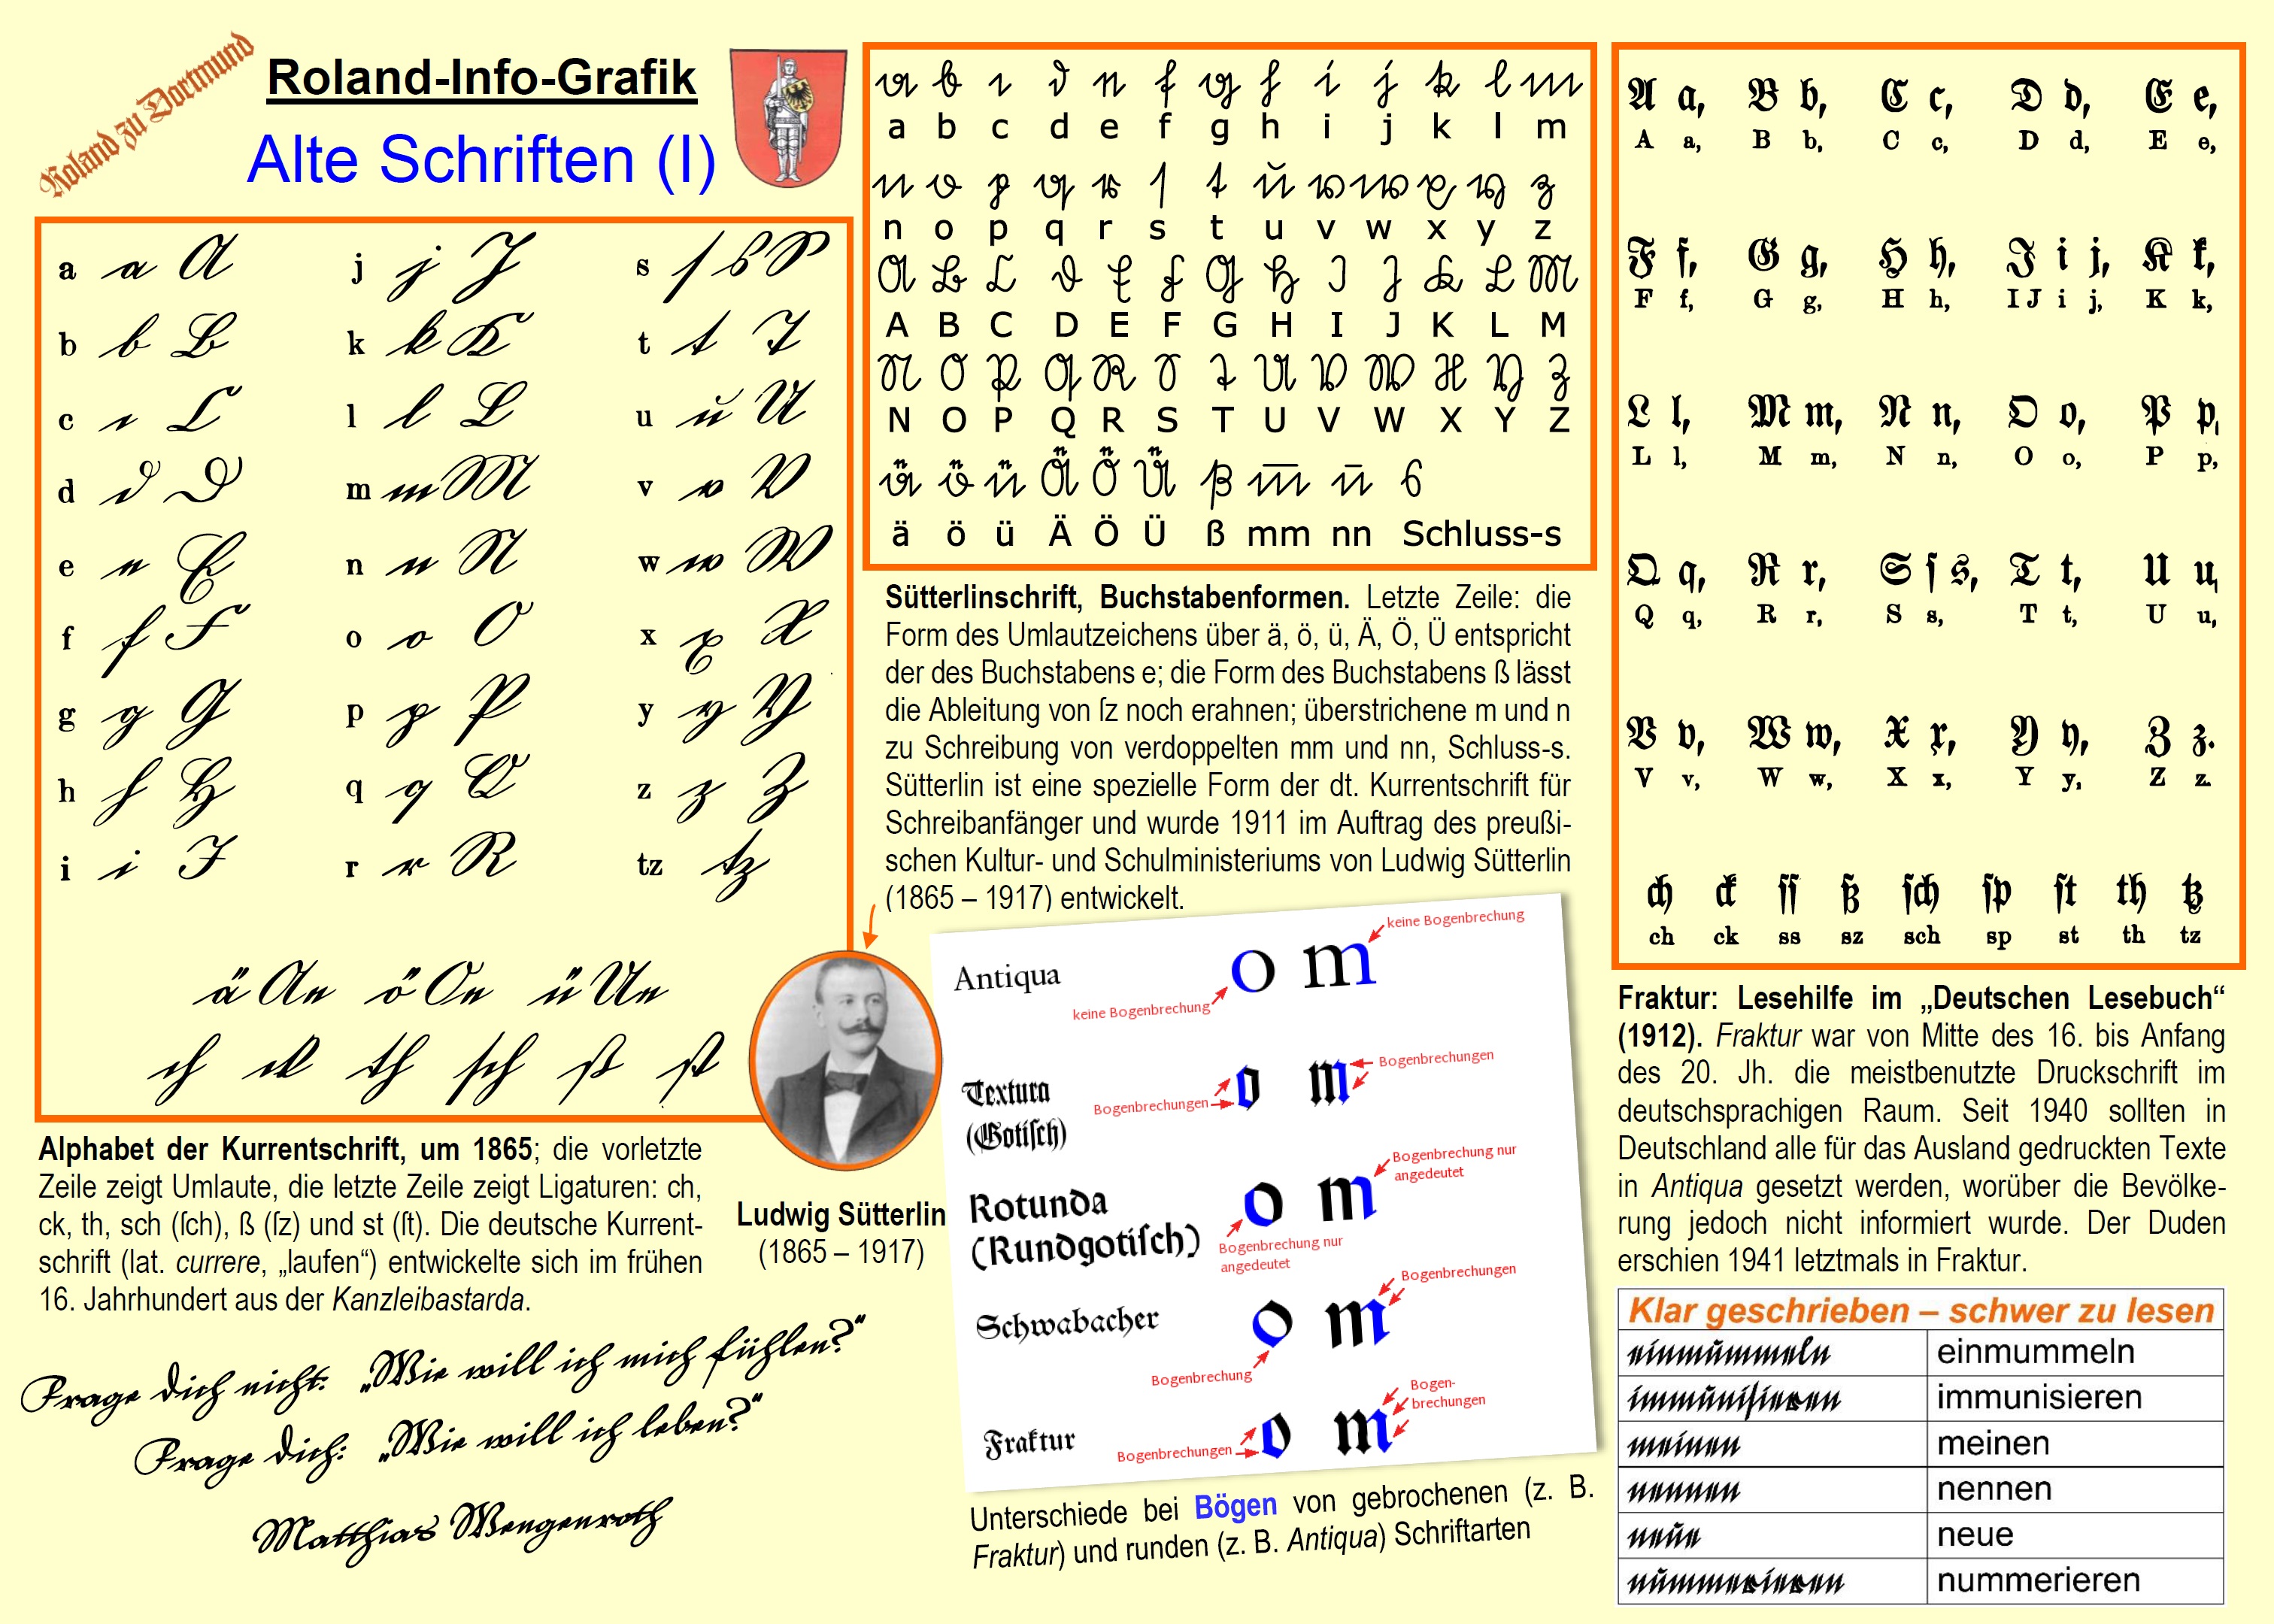 Roland zu Dortmund
Roland-Info-Grafik
Alte Schriften (I)
a a A
b b B
c c C
d d D
e e E
f f F
g g G
h h H
i i I
j j J
k k K
l l L
m m M
n n N
o o O
p p P
q q Q
r r R
s ſ s S
t t T
u u U
v v V
w w W
x x X
y y Y
z z Z
tz tz
ä Ae ö Oe ü Ue
ch ck th sch ß st
Alphabet der Kurrentschrift, um 1865; die vorletzte
Zeile zeigt Umlaute, die letzte Zeile zeigt Ligaturen: ch,
ck, th, sch (ſch), ß (ſz) und st (ſt). Die deutsche Kurrent-
schrift (lat. currere, „laufen“) entwickelte sich im frühen
16. Jahrhundert aus der Kanzleibastarda.
Frage dich nicht: „Wie will ich mich fühlen?“
Frage dich: „Wie will ich leben?“
Matthias Wengenroth
a b c d e f g h i j k l m
a b c d e f g h i j k l m
n o p q r s t u v w x y z
n o p q r s t u v w x y z
A B C D E F G H I J K L M
A B C D E F G H I J K L M
N O P Q R S T U V W X Y Z
N O P Q R S T U V W X Y Z
ä ö ü Ä Ö Ü ß m̅ n̅ s
ä ö ü Ä Ö Ü ß mm nn Schluss-s
Sütterlinschrift, Buchstabenformen. Letzte Zeile: die
Form des Umlautzeichens über ä, ö, ü, Ä, Ö, Ü entspricht
der des Buchstabens e; die Form des Buchstabens ß lässt
die Ableitung von ſz noch erahnen; überstrichene m und n
zu Schreibung von verdoppelten mm und nn, Schluss-s.
Sütterlin ist eine spezielle Form der dt. Kurrentschrift für
Schreibanfänger und wurde 1911 im Auftrag des preußi-
schen Kultur- und Schulministeriums von Ludwig Sütterlin
(1865 – 1917) entwickelt.
Ludwig Sütterlin
(1865 – 1917)
Antiqua o m
keine Bogenbrechung
keine Bogenbrechung
Textura
(Gotiſch)
o m
Bogenbrechungen
Bogenbrechungen
Rotunda
(Rundgotiſch)
o m
Bogenbrechung nur
angedeutet
Bogenbrechung nur
angedeutet
Schwabacher o m
Bogenbrechungen
Bogenbrechung
Fraktur o m
Bogen-
brechungen
Bogenbrechungen
Unterschiede bei Bögen von gebrochenen (z. B.
Fraktur) und runden (z. B. Antiqua) Schriftarten
A a, B b, C c, D d, E e,
A a, B b, C c, D d, E e,
F f, G g, H h, I i j, K k,
F f, G g, H h, I J i j, K k,
L l, M m, N n, O o, P p,
L l, M m, N n, O o, P p,
Q q, R r, S ſ s, T t, U u,
Q q, R r, S s, T t, U u,
V v, W w, X x, Y y, Z z.
V v, W w, X x, Y y, Z z.
ch ck ſſ ß ſch ſp ſt th tz
ch ck ss sz sch sp st th tz
Fraktur: Lesehilfe im „Deutschen Lesebuch“
(1912). Fraktur war von Mitte des 16. bis Anfang
des 20. Jh. die meistbenutzte Druckschrift im
deutschsprachigen Raum. Seit 1940 sollten in
Deutschland alle für das Ausland gedruckten Texte
in Antiqua gesetzt werden, worüber die Bevölke-
rung jedoch nicht informiert wurde. Der Duden
erschien 1941 letztmals in Fraktur.
Klar geschrieben – schwer zu lesen
einmummeln einmummeln
immuniſieren immunisieren
meinen meinen
nennen nennen
neue neue
nummerieren nummerieren